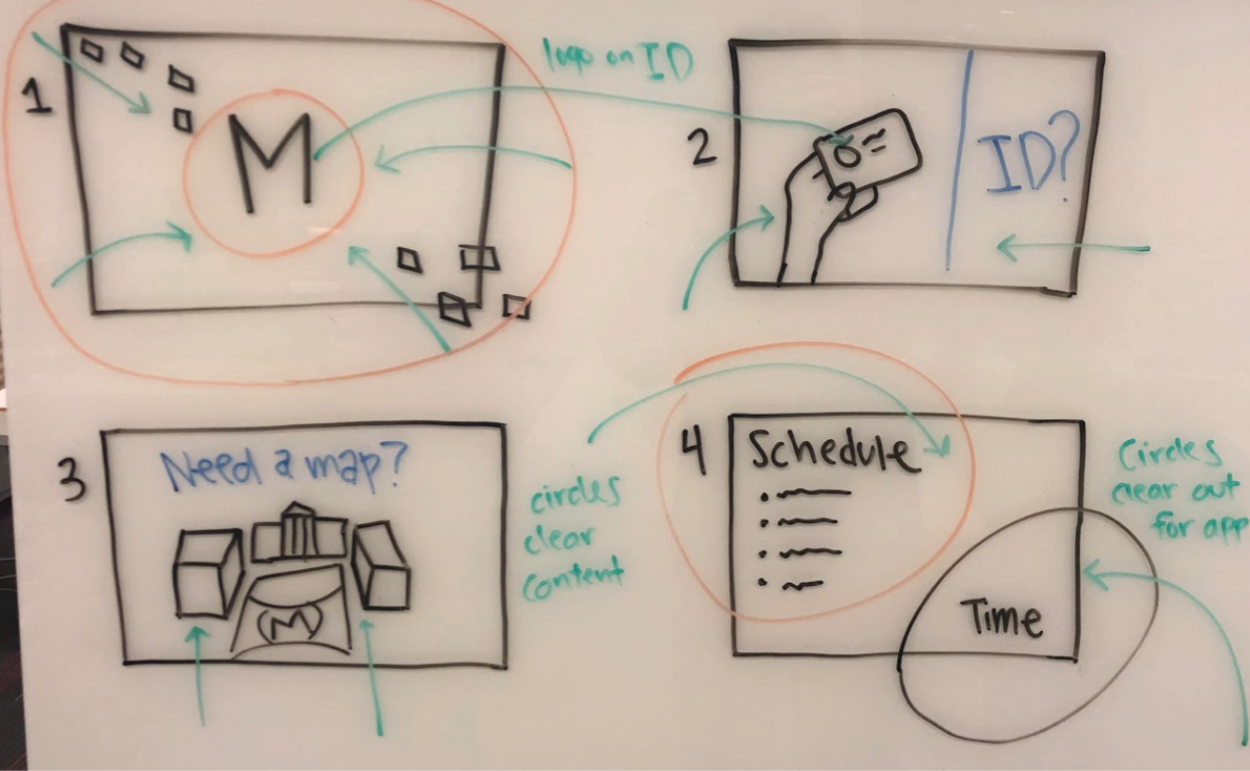 1
M
logo on ID
2
ID?
3
Need a map?
M
circles
clear
content
4
Schedule
Time
Circles
clear out
for app